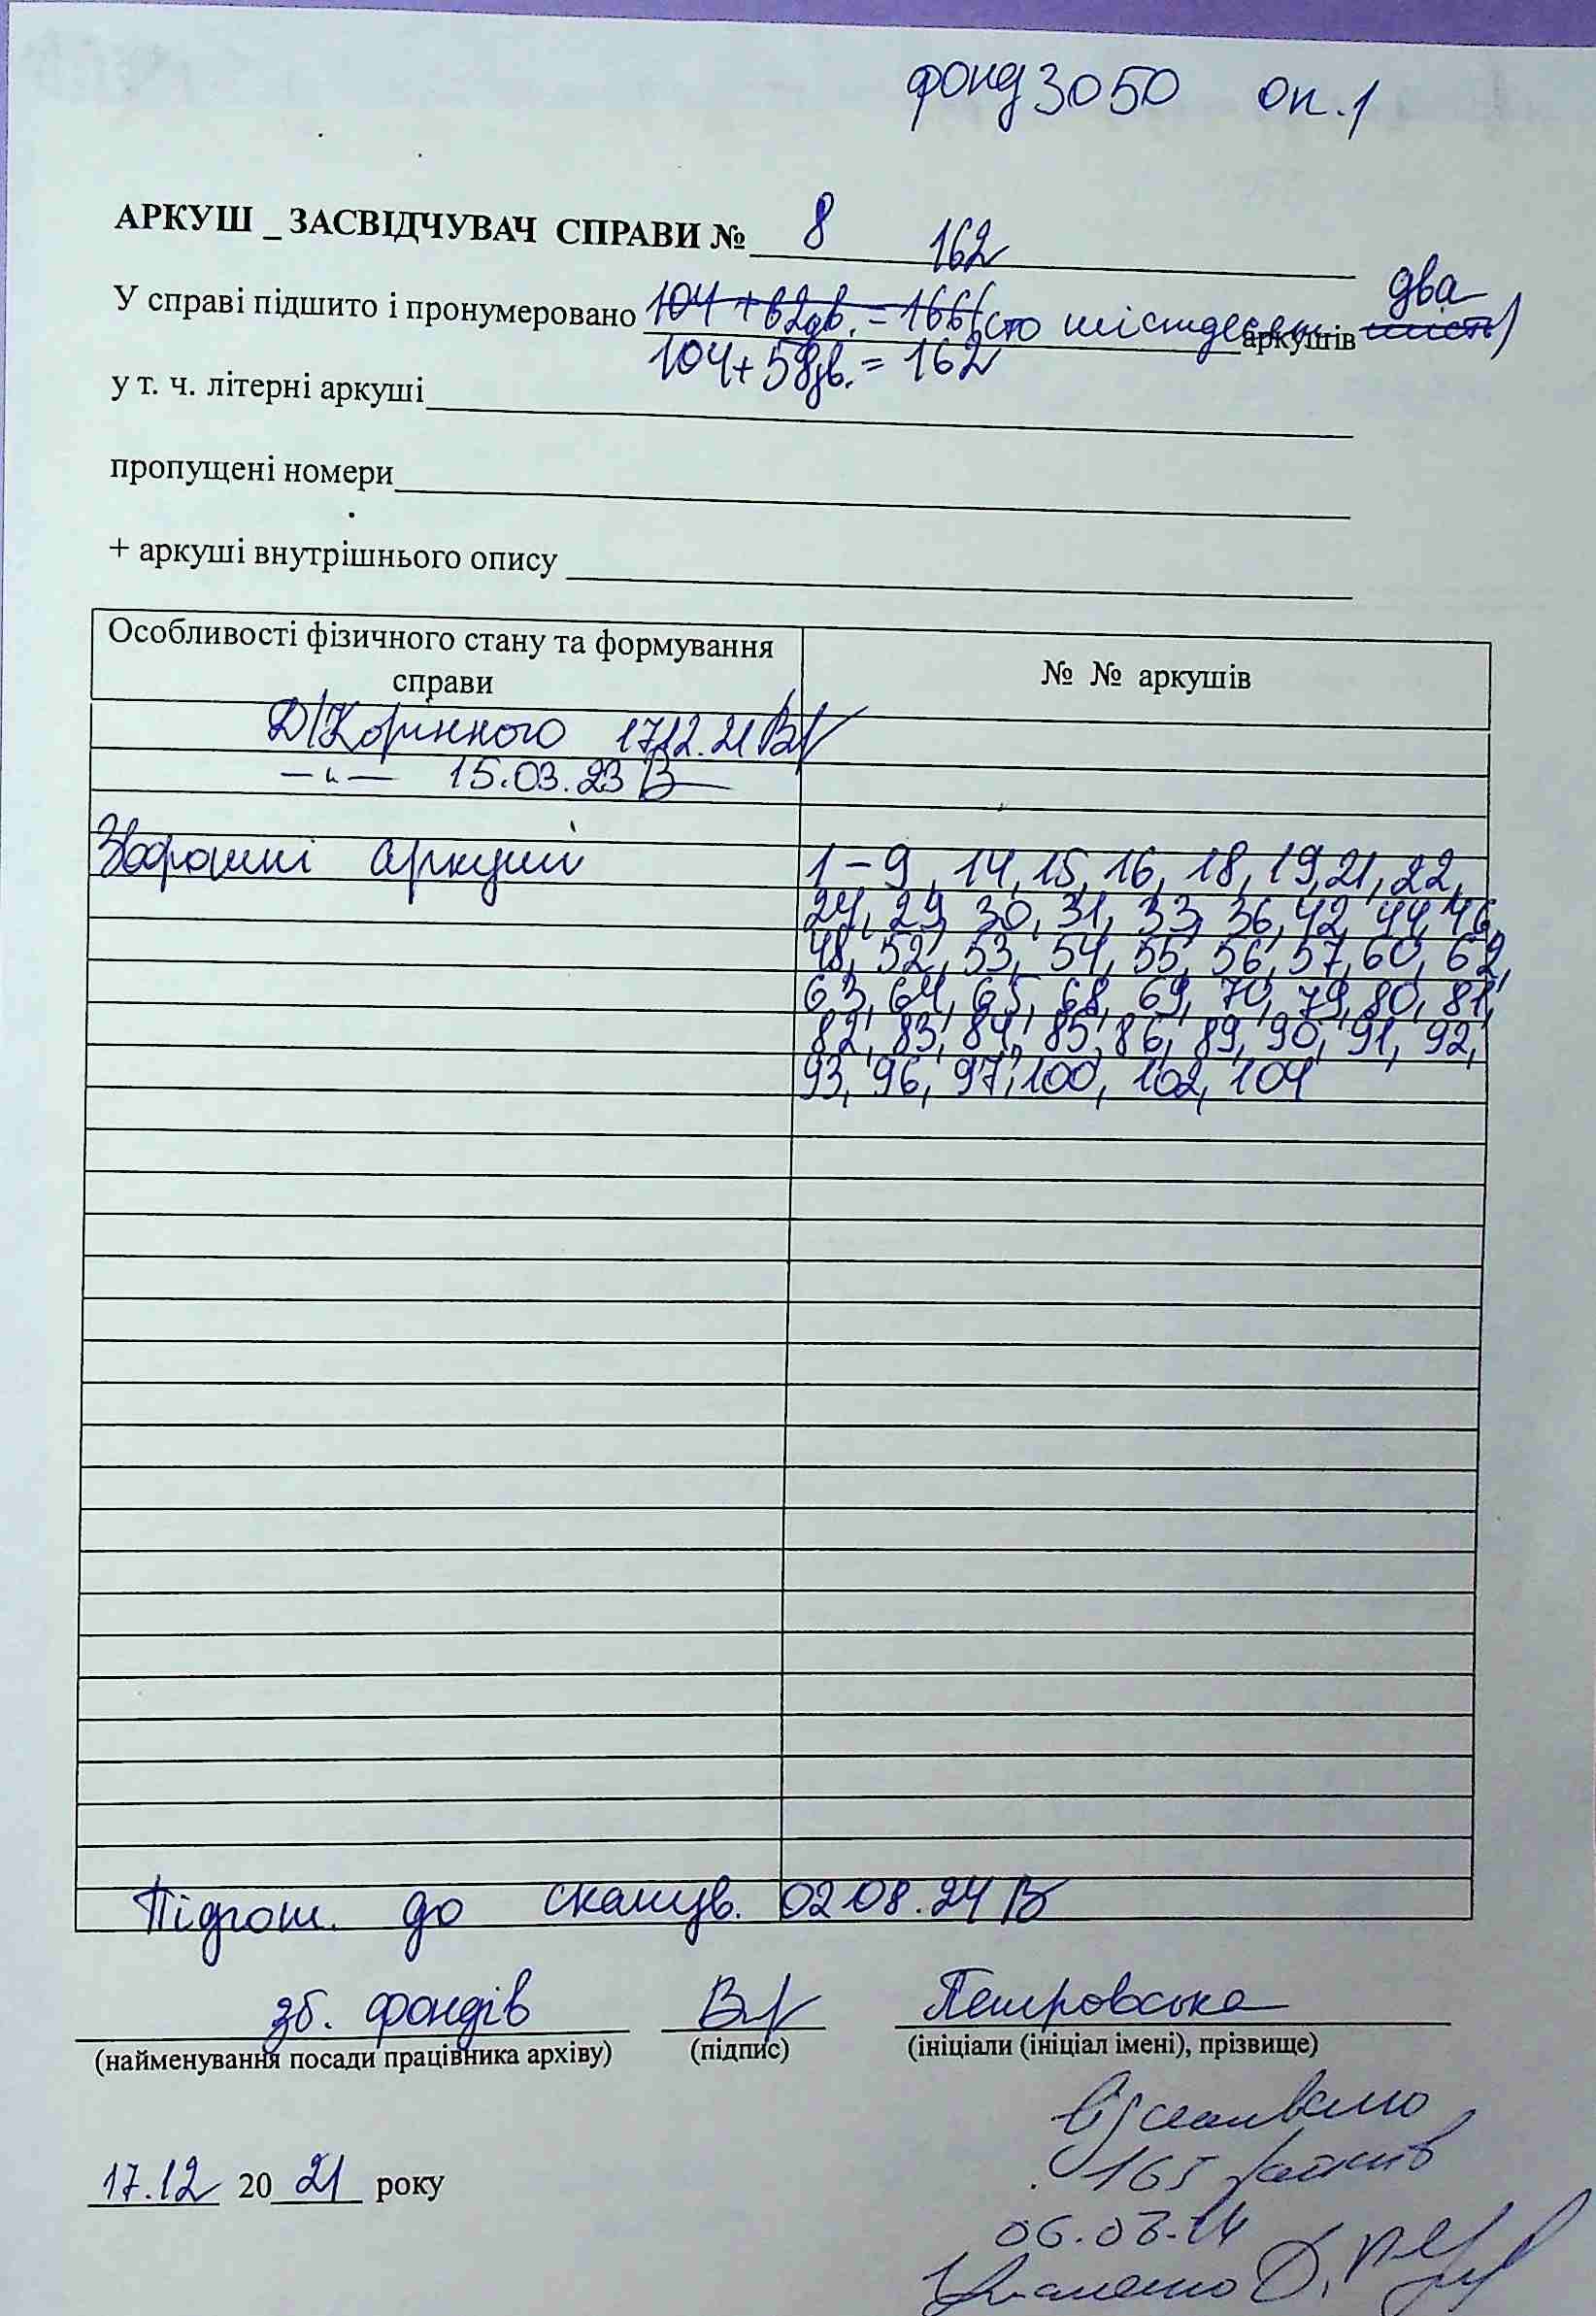 фонд 3050 оп. 1
АРКУШ _ ЗАСВІДЧУВАЧ СПРАВИ № 8
162
У справі підшито і пронумеровано 104 + 62 зв. = 166 (сто шістдесят аркушів шість) два
104 + 58 зв. = 162
у т. ч. літерні аркуші
пропущені номери
+ аркуші внутрішнього опису
Особливості фізичного стану та формування справи
№ № аркушів
Д/Корінного 17.12.21
—"— 15.03.23 В
Зворотні аркуші
1 – 9, 14, 15, 16, 18, 19, 21, 22,
24, 29, 30, 31, 33, 36, 42, 44, 46,
48, 52, 53, 54, 55, 56, 57, 60, 62,
63, 64, 65, 68, 69, 70, 79, 80, 81,
82, 83, 84, 85, 86, 89, 90, 91, 92,
93, 96, 97, 100, 102, 104
Підгот. до сканув. 02 08.24 В
зб. фондів
Петровська
(найменування посади працівника архіву) (підпис) (ініціали (ініціал імені), прізвище)
Відскановано
165 файлів
17.12 2021 року